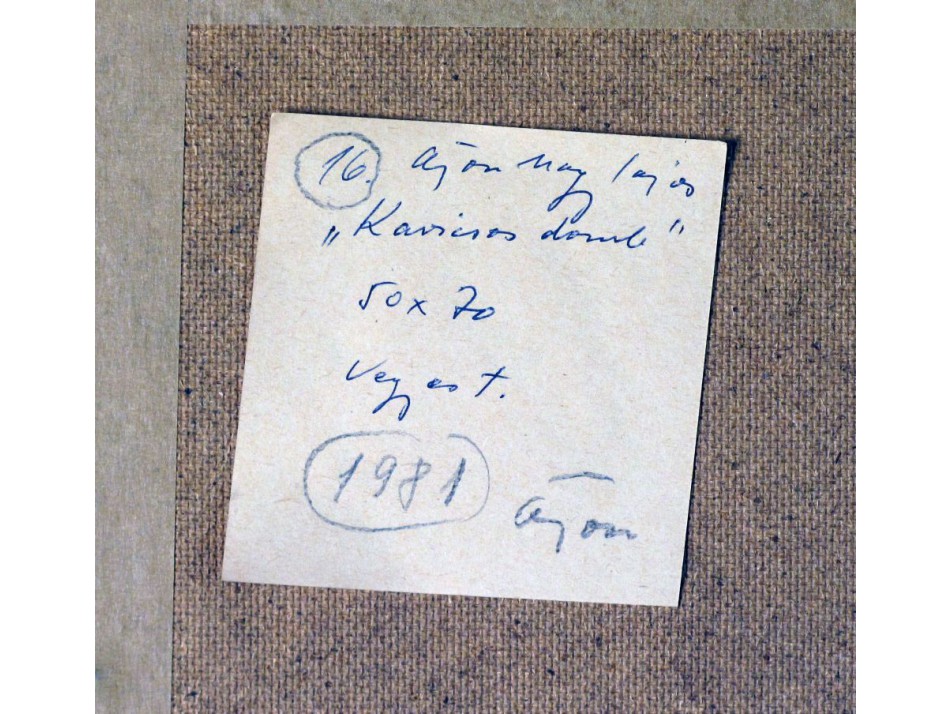 16. Ajon Nagy Lajos
„Kavicsos domb"
50 x 70
Vegyes t.
1981
Ajon